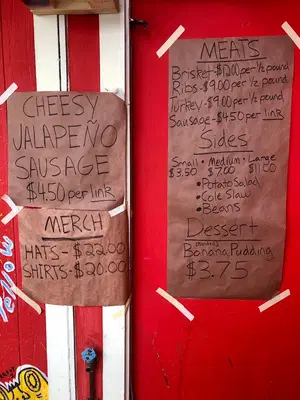 CHEESY
JALAPEÑO
SAUSAGE
$4.50 per link
MERCH
HATS-$22.00
SHIRTS-$20.00
MEATS
Brisket-$12.00 per ½ pound
Ribs-$9.00 per ½ pound
Turkey-$9.00 per ½ pound
Sausage-$4.50 per link
Sides
Small • Medium • Large
$3.50 $7.00 $11.00
• Potato Salad
• Cole Slaw
• Beans
Dessert
Banana Pudding
$3.75